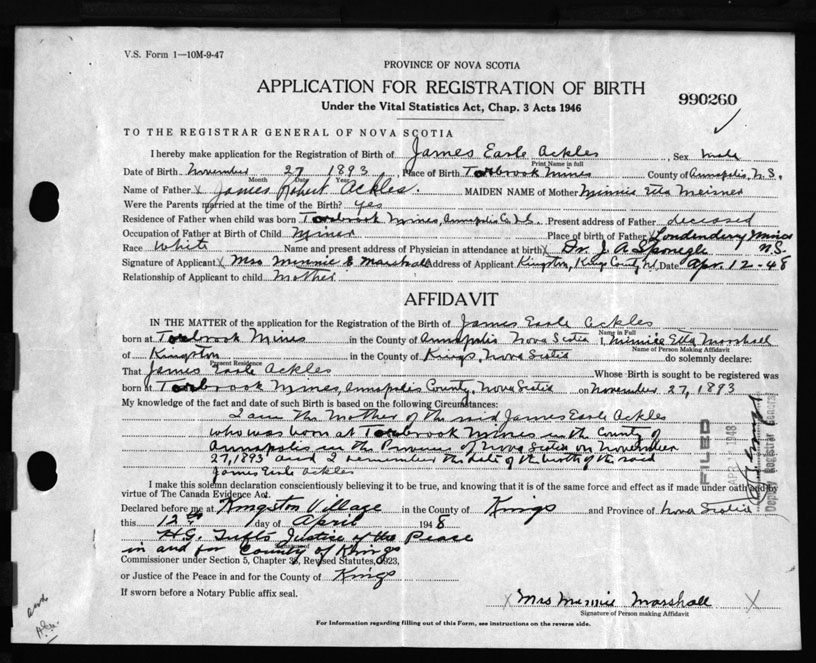 V.S. Form 1—10M-9-47
PROVINCE OF NOVA SCOTIA
APPLICATION FOR REGISTRATION OF BIRTH
990260
Under the Vital Statistics Act, Chap. 3 Acts 1946
TO THE REGISTRAR GENERAL OF NOVA SCOTIA
I hereby make application for the Registration of Birth of James Earle Ackles, Sex male
Print Name in full
Date of Birth November 27 1893, Place of Birth Torbrook Mines County of Annapolis, N.S.
Month Date Year
Name of Father x James Robert Ackles. MAIDEN NAME of Mother Minnie Etta Meisner
Were the Parents married at the time of the Birth? yes
Residence of Father when child was born Torbrook Mines, Annapolis Co. N.S. Present address of Father deceased
Occupation of Father at Birth of Child Miner Place of birth of Father Londonderry Mines N.S.
Race White Name and present address of Physician in attendance at birth Dr. J. A. Sponagle
Signature of Applicant x Mrs Minnie E Marshall Address of Applicant Kingston, Kings County N.S, Date Apr. 12-48
Relationship of Applicant to child mother
AFFIDAVIT
IN THE MATTER of the application for the Registration of the Birth of James Earle Ackles
Name in Full
born at Torbrook Mines in the County of Annapolis Nova Scotia I, Minnie Etta Marshall
Name of Person Making Affidavit
of Kingston in the County of Kings, Nova Scotia do solemnly declare:
Present Residence
That James Earle Ackles Whose Birth is sought to be registered was
born at Torbrook Mines, Annapolis County, Nova Scotia on November 27, 1893
My knowledge of the fact and date of such Birth is based on the following Circumstances:
I am the Mother of the said James Earle Ackles
who was born at Torbrook Mines in the County of
Annapolis in the Province of Nova Scotia on November
27, 1893 and I remember the date of the birth of the said
James Earle Ackles
FILED
1948
Deputy Registrar General
I make this solemn declaration conscientiously believing it to be true, and knowing that it is of the same force and effect as if made under oath and by
virtue of The Canada Evidence Act.
Declared before me at Kingston Village in the County of Kings and Province of Nova Scotia
this 12th day of April 1948
H.G. Tufts Justice of the Peace
in and for County of Kings
Commissioner under Section 5, Chapter 38, Revised Statutes, 1923,
or Justice of the Peace in and for the County of Kings
If sworn before a Notary Public affix seal.
x Mrs Minnie Marshall x
Signature of Person making Affidavit
For Information regarding filling out of this Form, see instructions on the reverse side.